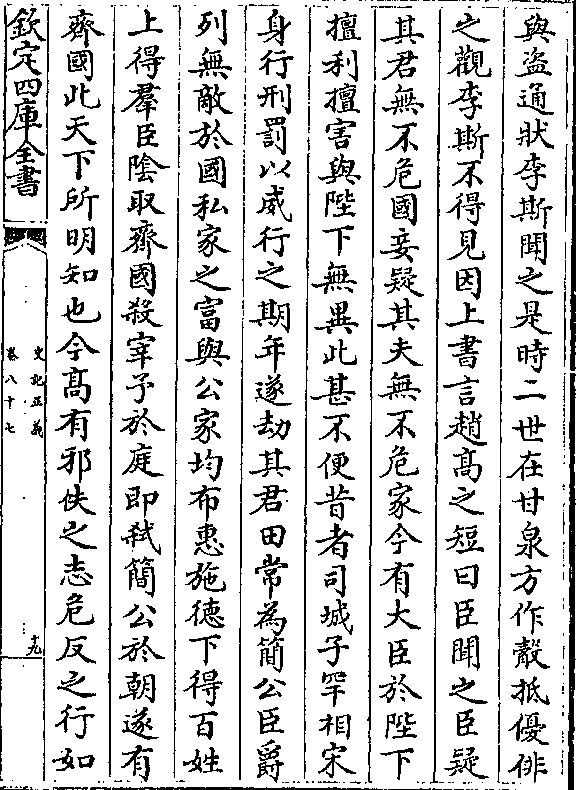 與盗通狀李斯聞之是時二世在甘泉方作觳抵優俳
之觀李斯不得見因上書言趙髙之短曰臣聞之臣疑
其君無不危國妾疑其夫無不危家今有大臣於陛下
擅利擅害與陛下無異此甚不便昔者司城子罕相宋
身行刑罰以威行之期年遂劫其君田常為簡公臣爵
列無敵於國私家之富與公家均布惠施德下得百姓
上得羣臣陰取齊國殺宰予於庭即弑簡公於朝遂有
齊國此天下所明知也今髙有邪佚之志危反之行如
欽定四庫全書
史記正義
卷八十七
十九